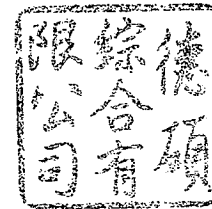 德碩
綜合有
限公司